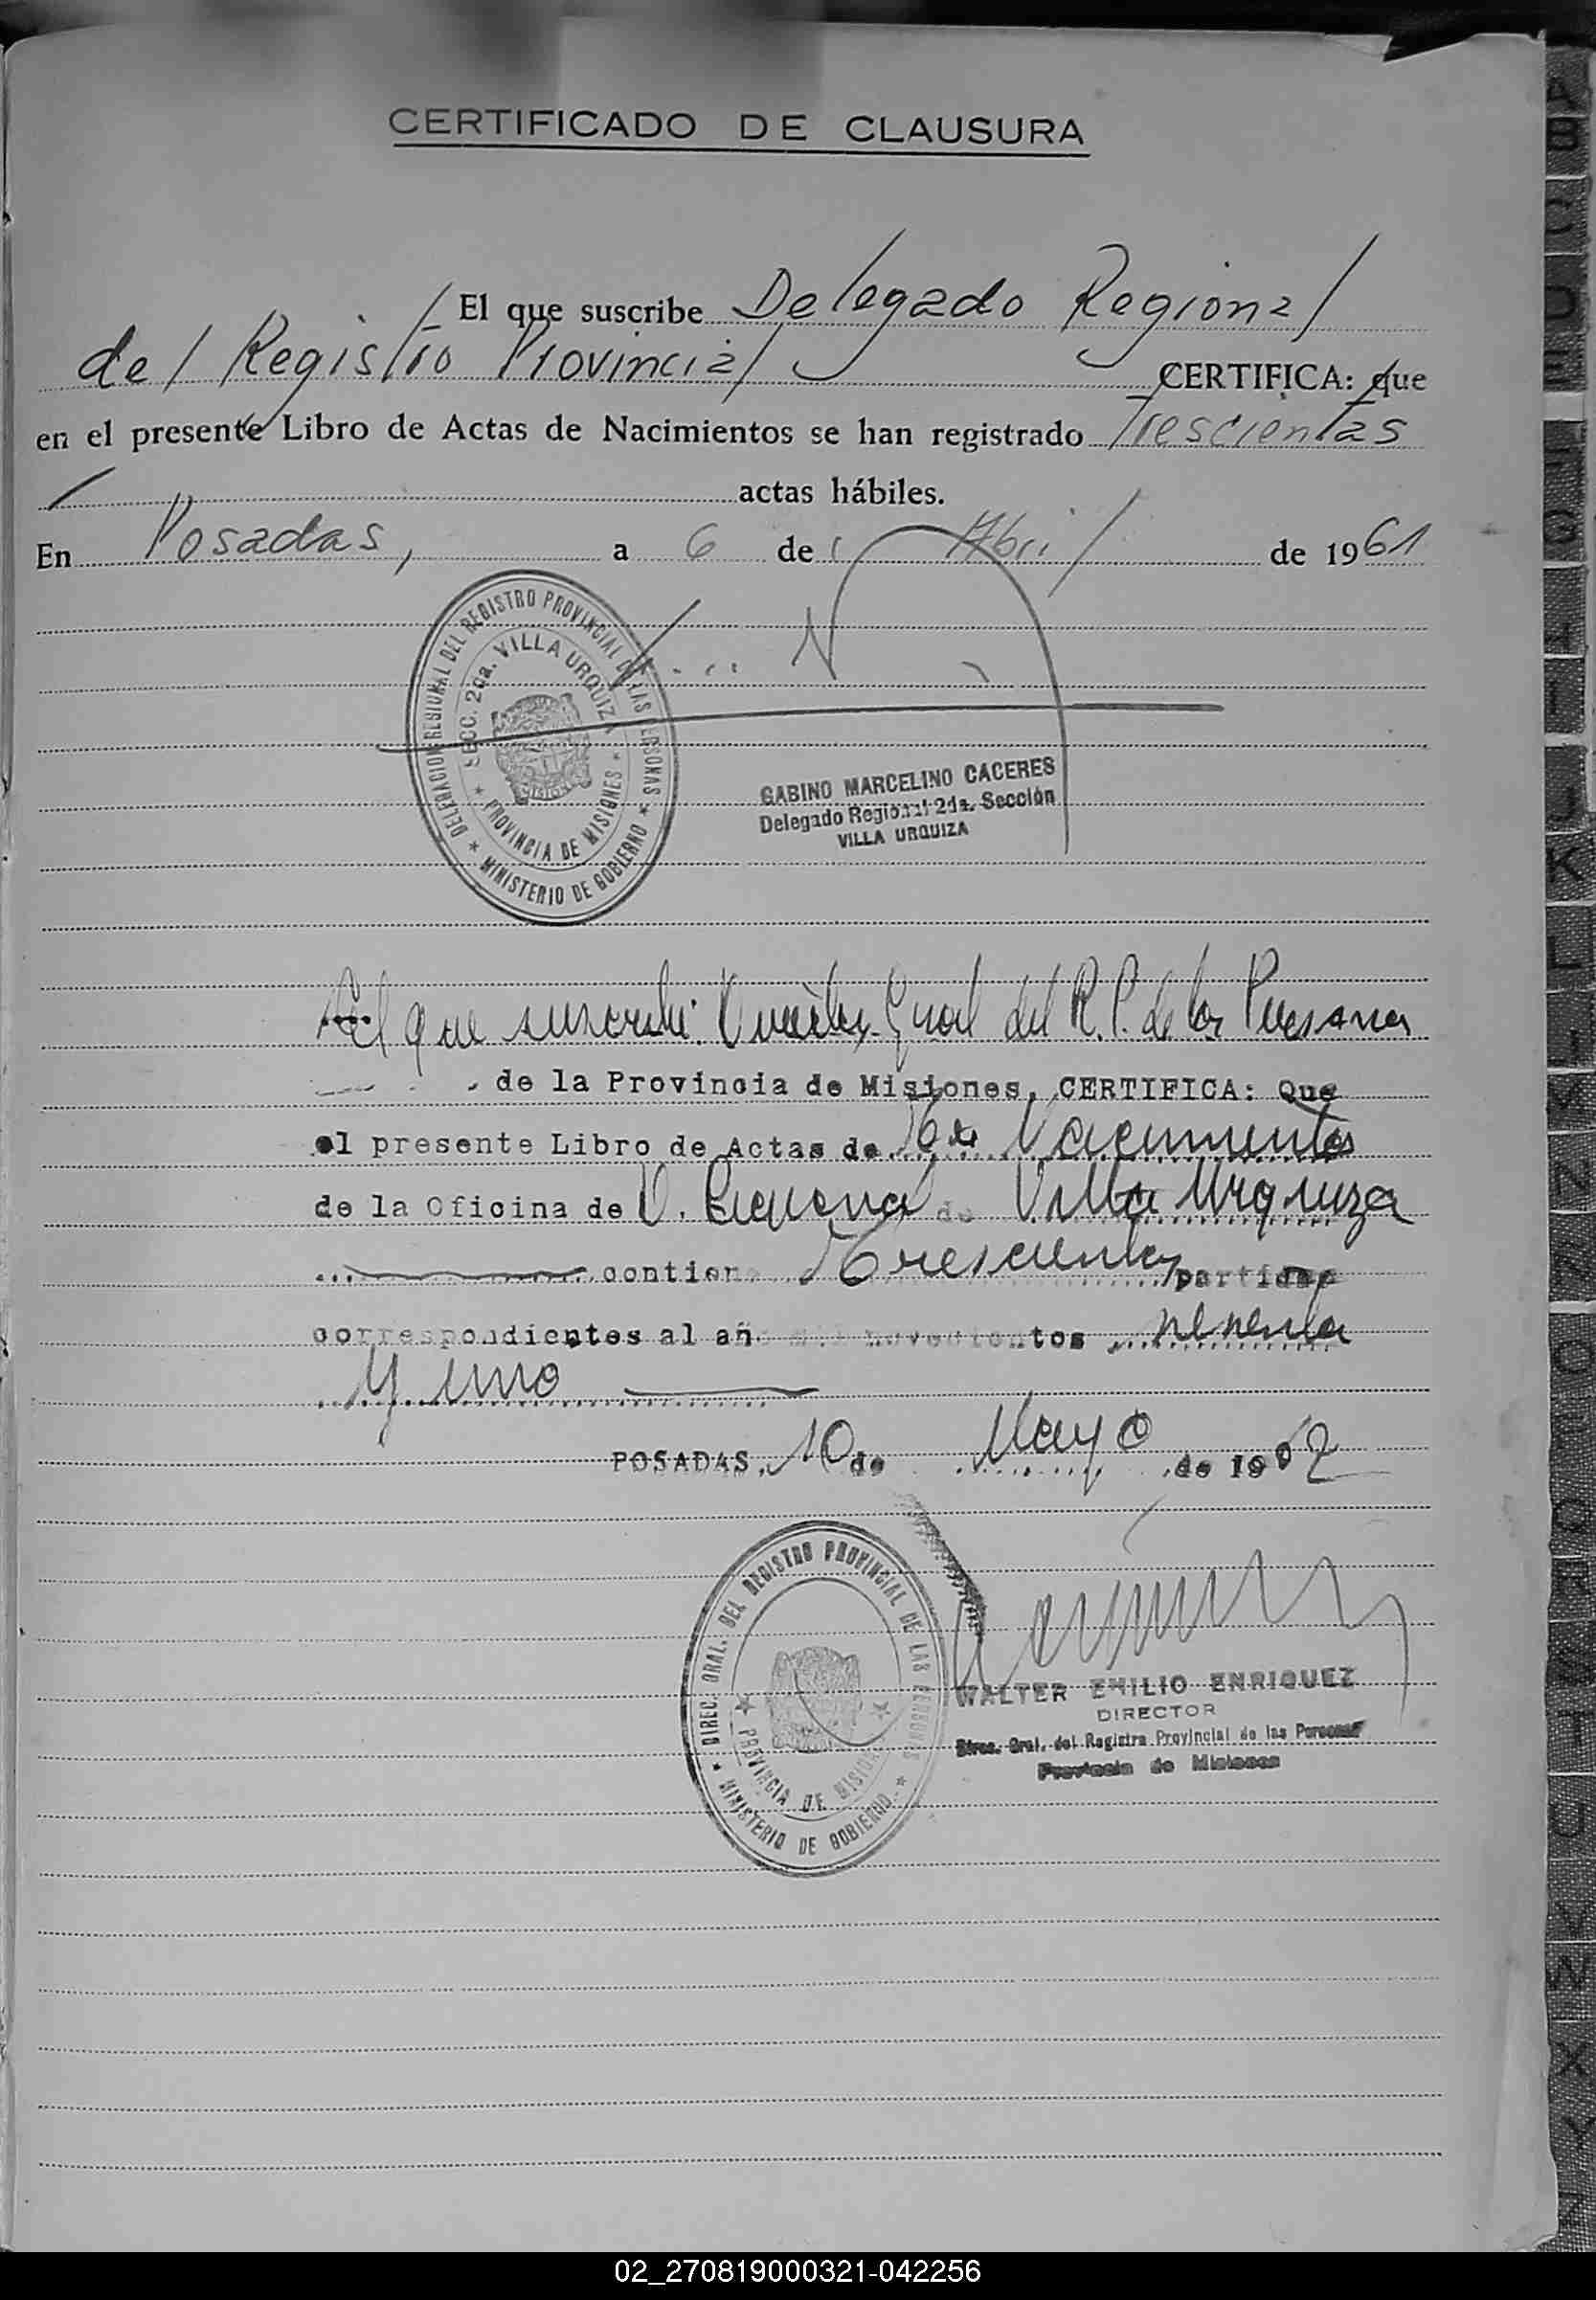 CERTIFICADO DE CLAUSURA
El que suscribe Delegado Regional
del Registro Provincial CERTIFICA: que
en el presente Libro de Actas de Nacimientos se han registrado Trescientas
actas hábiles.
En Posadas, a 6 de Abril de 1961
DELEGACION REGIONAL DEL REGISTRO PROVINCIAL DE LAS PERSONAS
SECC. 2da. VILLA URQUIZA
MISIONES
PROVINCIA DE MISIONES
MINISTERIO DE GOBIERNO
GABINO MARCELINO CACERES
Delegado Regional 2da. Sección
VILLA URQUIZA
El que suscribe: Director Gral del R. P. de las Personas
de la Provincia de Misiones, CERTIFICA: Que
el presente Libro de Actas de Nacimientos
de la Oficina de V. de Villa Urquiza
contiene Trescientas partidas
correspondientes al año mil novecientos sesenta
y uno
POSADAS, 10 de Mayo de 1962
DIREC. GRAL. DEL REGISTRO PROVINCIAL DE LAS PERSONAS
PROVINCIA DE MISIONES
MINISTERIO DE GOBIERNO
WALTER EMILIO ENRIQUEZ
DIRECTOR
Direc. Gral. del Registro Provincial de las Personas
Provincia de Misiones
A
B
C
D
E
F
G
H
I
J
K
L
M
N
O
P
Q
R
S
T
U
V
W
X
Y
Z
02_270819000321-042256